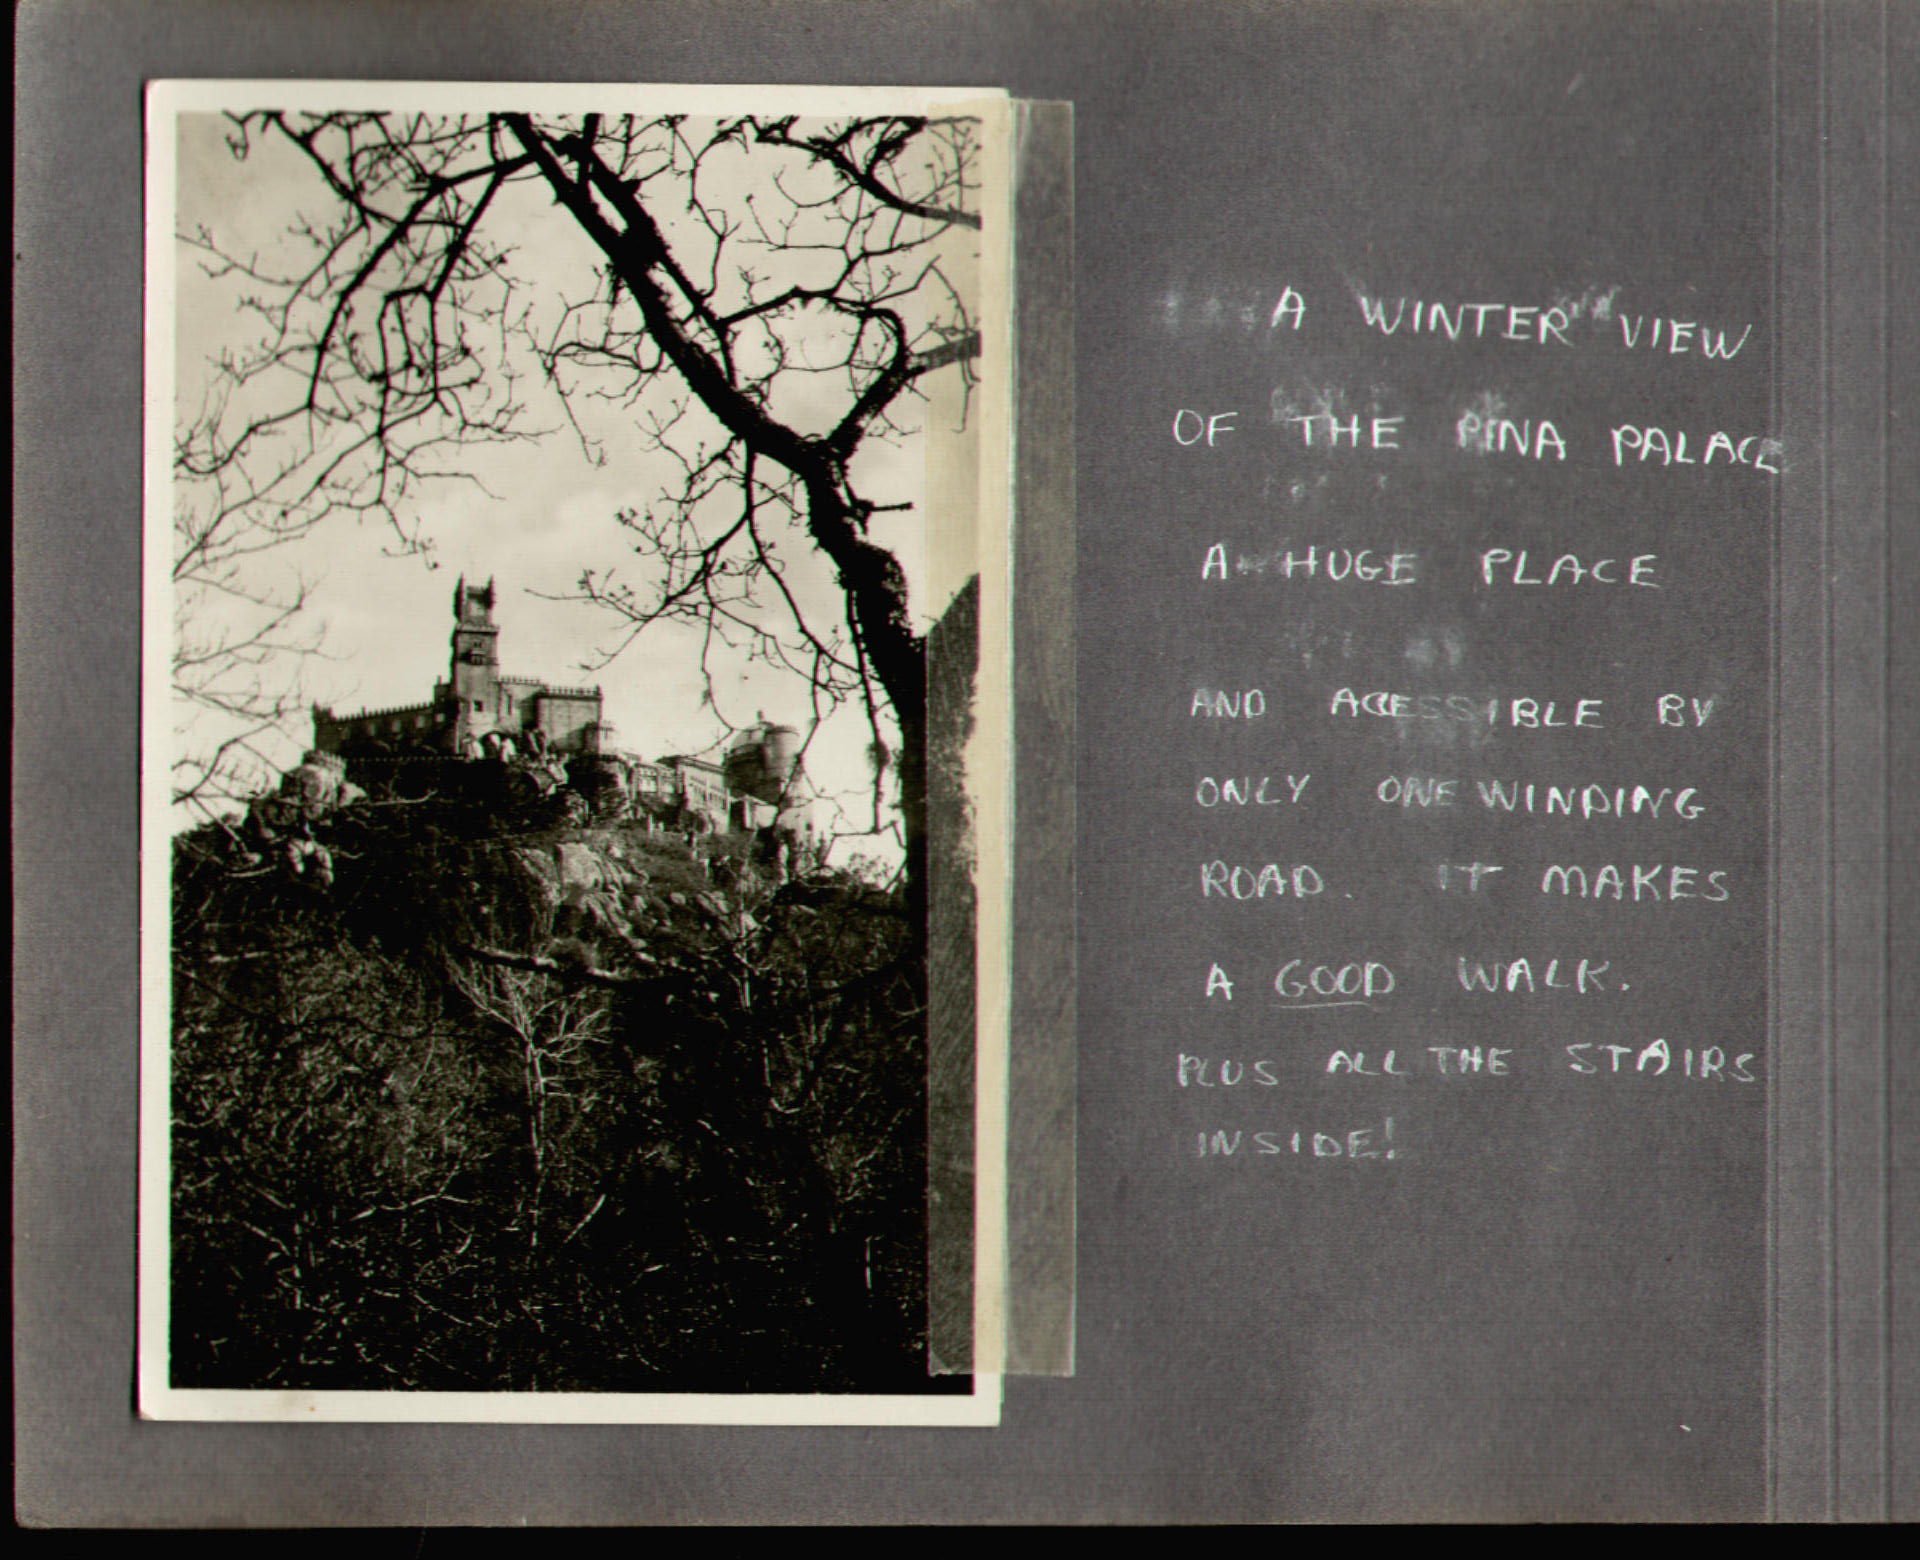 A WINTER VIEW
OF THE PINA PALACE
A HUGE PLACE
AND ACESSIBLE BY
ONLY ONE WINDING
ROAD. IT MAKES
A GOOD WALK.
PLUS ALL THE STAIRS
INSIDE!